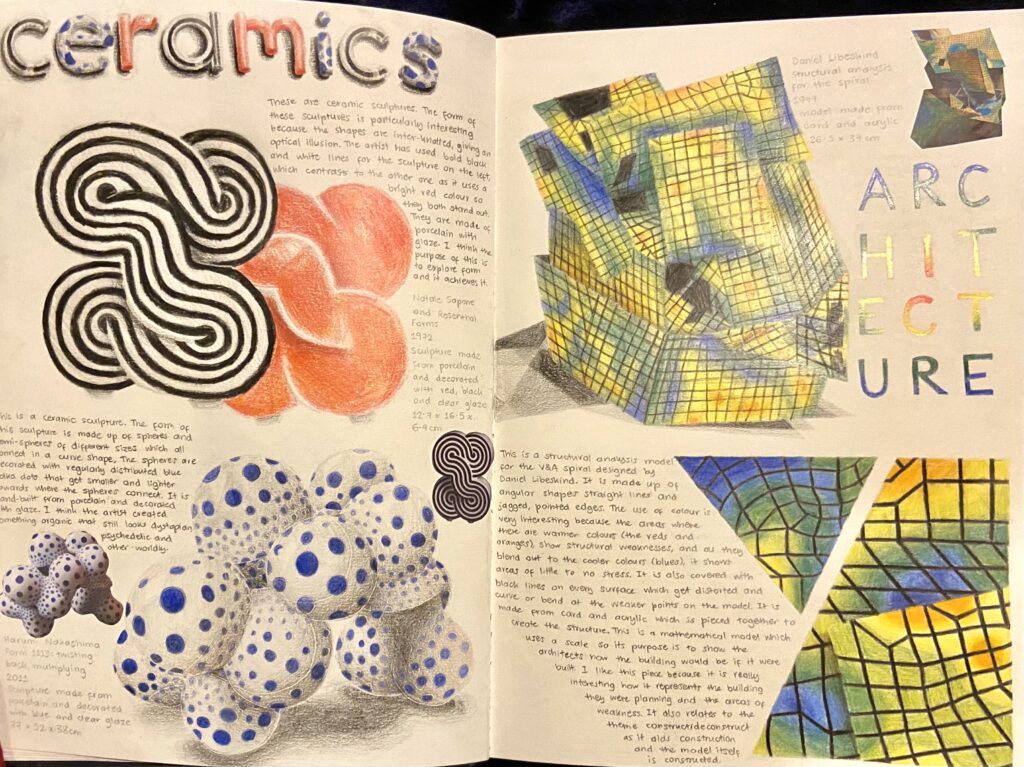 ceramics
These are ceramic sculptures. The form of
these sculptures is particularly interesting
because the shapes are inter-knotted, giving an
optical illusion. The artist has used bold black
and white lines for the sculpture on the left,
which contrasts to the other one as it uses a
bright red colour so
they both stand out.
They are made of
porcelain with
glaze. I think the
purpose of this is
to explore form
and it achieves it.
Natale Sapone
and Rosenthal
Forms
1972
Sculpture made
from porcelain
and decorated
with red, black
and clear glaze
12.7 × 16.5 ×
6.9 cm
This is a ceramic sculpture. The form of
this sculpture is made up of spheres and
semi-spheres of different sizes which all
connect in a curve shape. The spheres are
decorated with regularly distributed blue
polka dots that get smaller and lighter
towards where the spheres connect. It is
hand-built from porcelain and decorated
with glaze. I think the artist created
something organic that still looks dystopian,
psychedelic and
other-worldly.
Harumi Nakashima
Form 1113: twisting
back, multiplying
2011
Sculpture made from
porcelain and decorated
with blue and clear glaze
27 × 52 × 38cm
Daniel Libeskind
structural analysis
for the spiral
1997
model made from
card and acrylic
26.5 × 34 cm
ARC
HIT
ECT
URE
This is a structural analysis model
for the V&A spiral designed by
Daniel Libeskind. It is made up of
angular shapes straight lines and
jagged, pointed edges. The use of colour is
very interesting because the areas where
there are warmer colours (the reds and
oranges), show structural weaknesses, and as they
blend out to the cooler colours (blues), it shows
areas of little to no stress. It is also covered with
black lines on every surface which get distorted and
curve or bend at the weaker points on the model. It is
made from card and acrylic which is pieced together to
create the structure. This is a mathematical model which
uses a scale so its purpose is to show the
architects how the building would be if it were
built. I like this piece because it is really
interesting how it represents the building
they were planning and the areas of
weakness. It also relates to the
theme construct/deconstruct
as it aids construction
and the model itself
is constructed.